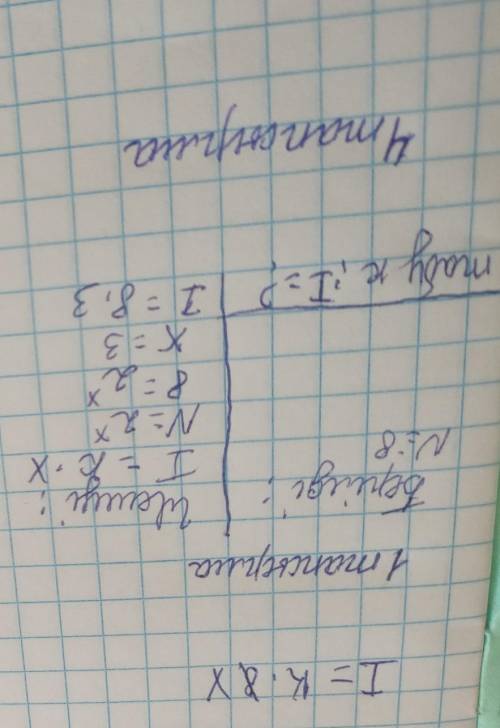 I = K · 2 X
1 тапсырма
Берілгені:
N = 8
табу к. I = ?
Шешуі:
I = K · X
N = 2ˣ
8 = 2ˣ
X = 3
I = 8 · 3
4 тапсырма